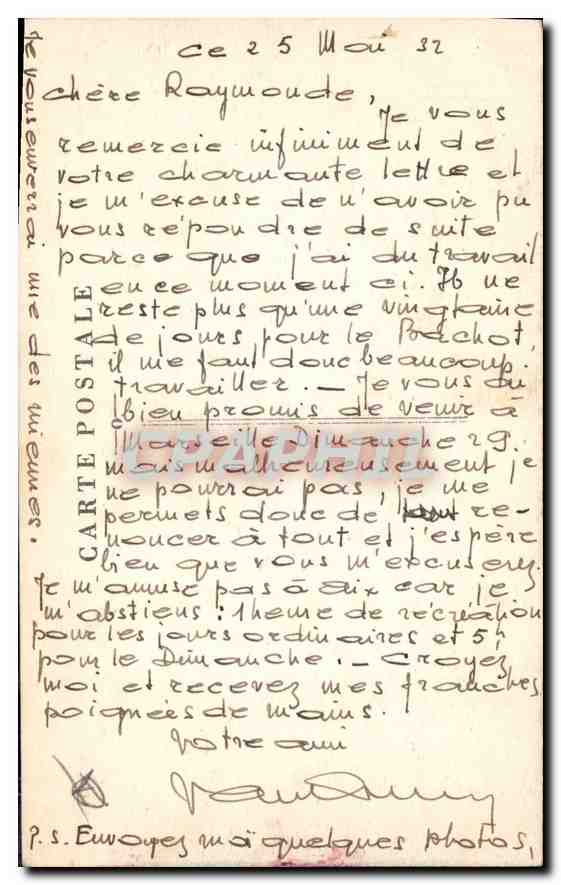 ce 25 Mai 32
chère Raymonde,
Je vous
remercie infiniment de
votre charmante lettre et
je m'excuse de n'avoir pu
vous répondre de suite
parce que j'ai du travail
en ce moment ci. Il ne
reste plus qu'une vingtaine
de jours pour le Bachot,
il me faut donc beaucoup
travailler. — Je vous ai
bien promis de venir à
Marseille Dimanche 29.
mais malheureusement je
ne pourrai pas, je me
permets donc de re-
noncer à tout et j'espère
bien que vous m'excuserez.
Je m'amuse pas à Aix car je
m'abstiens : 1 heure de récréation
pour les jours ordinaires et 5h
pour le Dimanche. — Croyez
moi et recevez mes franches
poignées de mains.
Votre ami
p.s. Envoyez moi quelques photos,
Je vous enverrai une des miennes.
CARTE POSTALE
CPAPHIL